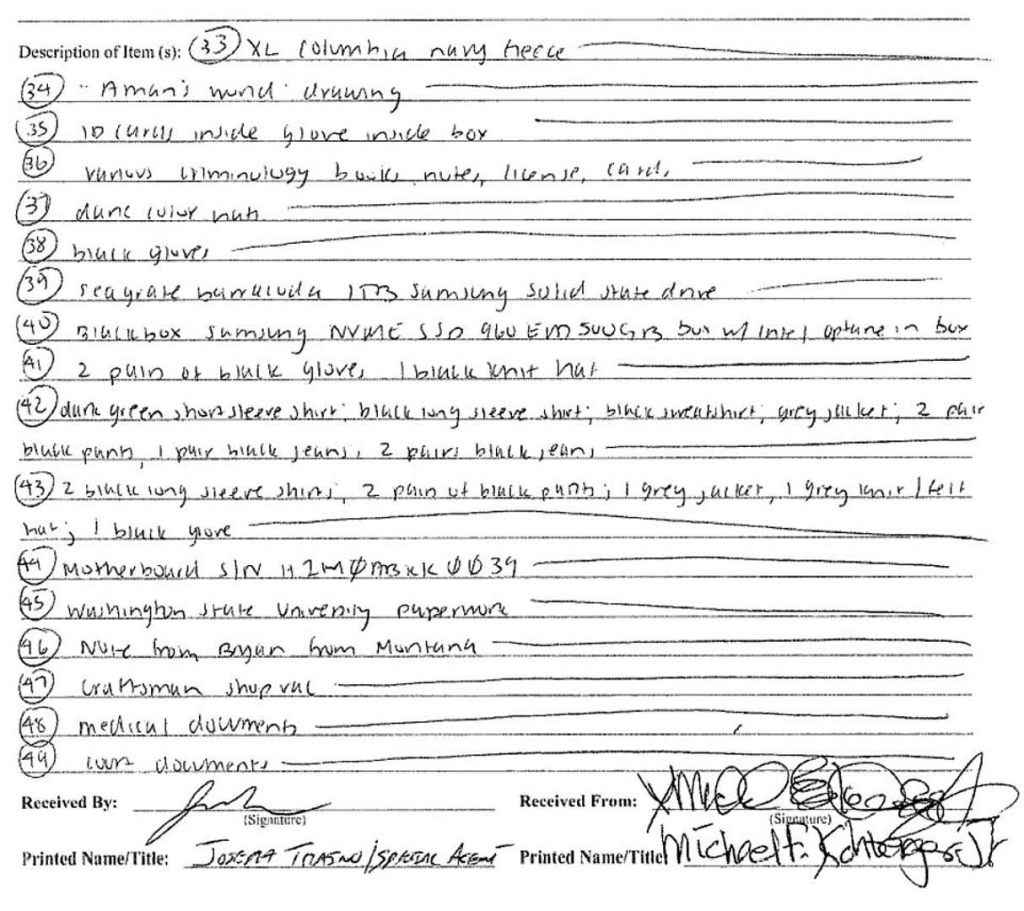 Description of Item (s): (33) XL Columbia navy fleece
(34) "Aman's mind" drawing
(35) ID cards inside glove inside box
(36) various criminology books, notes, license, card,
(37) dark color hat
(38) black gloves
(39) seagrate barracuda 1TB Samsung Solid state drive
(40) Blackbox Samsung NVME SSD 960 EVO 500GB box w/ intel optane in box
(41) 2 pair of black gloves 1 black knit hat
(42) dark green short sleeve shirt; black long sleeve shirt; black sweatshirt; grey jacket; 2 pair
black pants, 1 pair black jeans; 2 pairs black jeans
(43) 2 black long sleeve shirts; 2 pair of black pants; 1 grey jacket, 1 grey knit/felt
hat; 1 black glove
(44) Motherboard S/N
(45) Washington State University paperwork
(46) Note from Bryan from Montana
(47) craftsman shop vac
(48) medical documents
(49) documents
Received By:
Received From:
(Signature)
(Signature)
Printed Name/Title: Joseph / Special Agent
Printed Name/Title Michael F. Jr